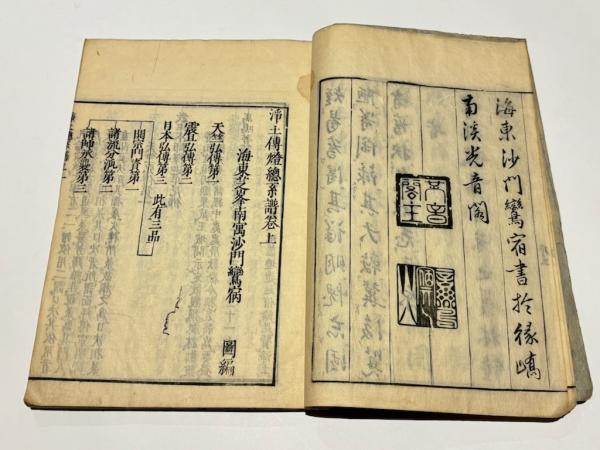 海東沙門鸞宿書於緣嶠
南溪光音閣
光音閣主
淨土傳燈總系譜卷上
海東金峯南寓沙門鸞宿 圖編
天竺弘傳第一
震旦弘傳第二
日本弘傳第三 此有三品
開宗門資第一
諸流分派第二
諸師承襲第三